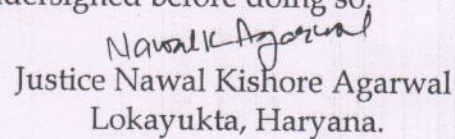 undersigned before doing so.
Nawal K Agarwal
Justice Nawal Kishore Agarwal
Lokayukta, Haryana.